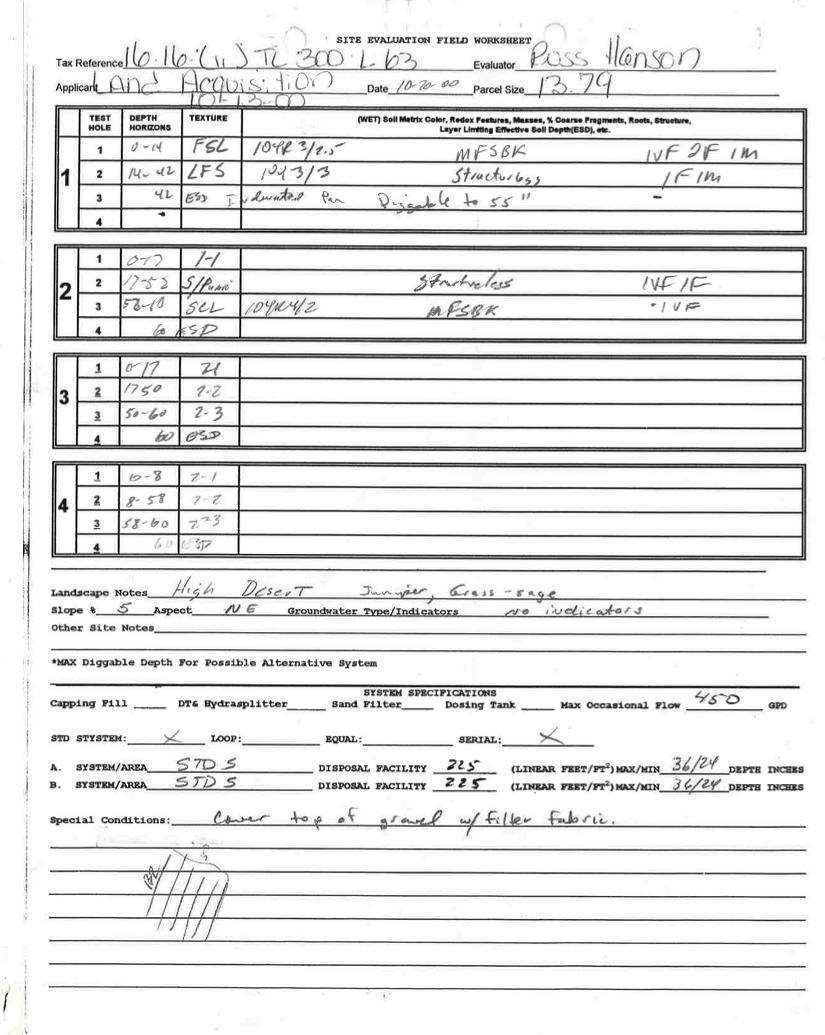 SITE EVALUATION FIELD WORKSHEET
Tax Reference 16·16·(11) TL 300 L-63 Evaluator Ross Hanson
Applicant Land Acquisition Date 10-20-00 Parcel Size 13.79
10-13-00
TEST HOLE DEPTH HORIZONS TEXTURE (WET) Soil Matrix Color, Redox Features, Masses, % Coarse Fragments, Roots, Structure, Layer Limiting Effective Soil Depth(ESD), etc.
1
1 0-14 FSL 10YR 3/2.5 MFSBK 1VF 2F 1M
2 14-42 LFS 10Y3/3 Structurless 1F 1M
3 42 ESD Indurated Pan Diggable to 55" -
4
2
1 0-17 1-1
2 17-52 S/Pumi Structureless 1VF 1F
3 SCL 10YR4/2 MFSBK 1VF
4 60 ESD
3
1 0-17 21
2 1750 2-2
3 50-60 2-3
4 60 ESD
4
1 0-8 2-1
2 8-58 2-2
3 58-60 2-3
4 60 ESD
Landscape Notes High Desert Juniper, Grass-sage
Slope % 5 Aspect NE Groundwater Type/Indicators no indicators
Other Site Notes
*MAX Diggable Depth For Possible Alternative System
SYSTEM SPECIFICATIONS
Capping Fill DT& Hydrasplitter Sand Filter Dosing Tank Max Occasional Flow 450 GPD
STD STYSTEM: X LOOP: EQUAL: SERIAL: X
A. SYSTEM/AREA STD S DISPOSAL FACILITY 225 (LINEAR FEET/FT²)MAX/MIN 36/24 DEPTH INCHES
B. SYSTEM/AREA STD S DISPOSAL FACILITY 225 (LINEAR FEET/FT²)MAX/MIN 36/24 DEPTH INCHES
Special Conditions: Cover top of gravel w/ filter fabric.